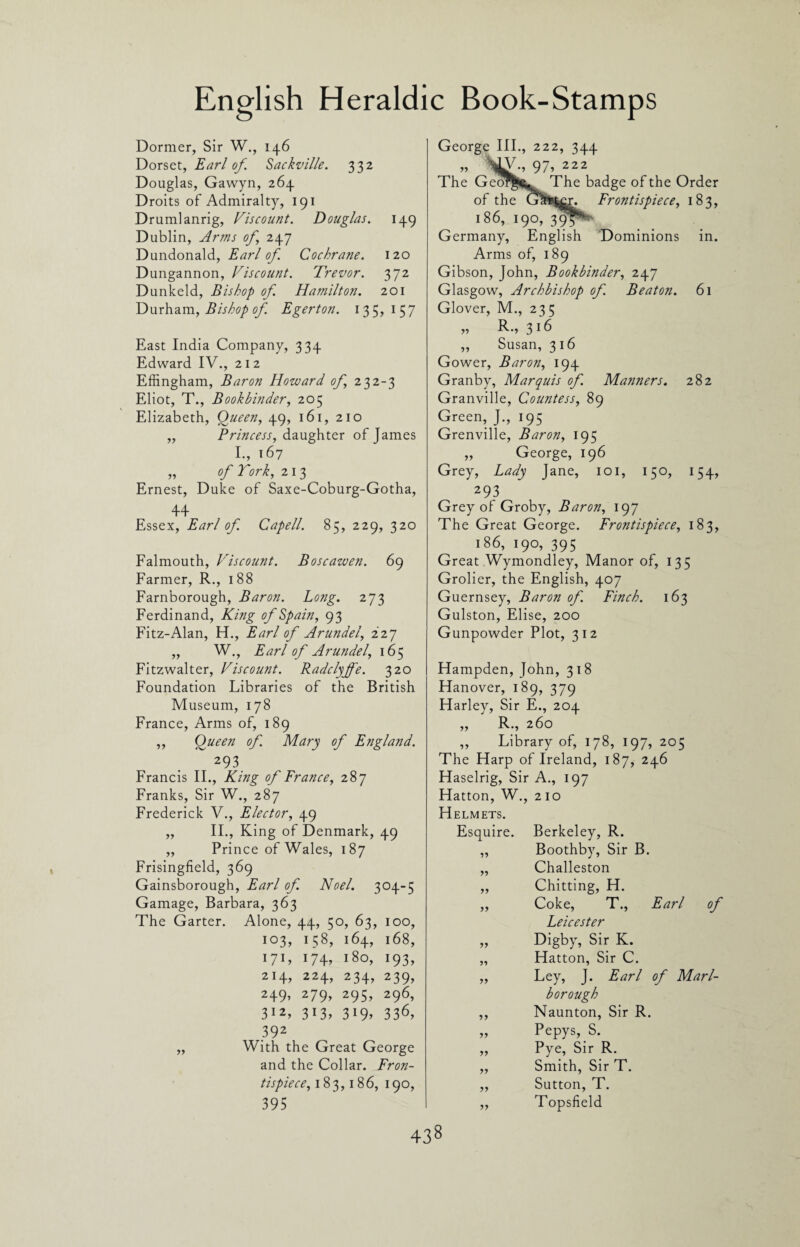 English Heraldic Book-Stamps
Dormer, Sir W., 146
Dorset, Earl of. Sackville. 332
Douglas, Gawyn, 264
Droits of Admiralty, 191
Drumlanrig, Viscount. Douglas. 149
Dublin, Arms of, 247
Dundonald, Earl of. Cochrane. 120
Dungannon, Viscount. Trevor. 372
Dunkeld, Bishop of. Hamilton. 201
Durham, Bishop of. Egerton. 135, 157
East India Company, 334
Edward IV., 212
Effingham, Baron Howard of, 232-3
Eliot, T., Bookbinder, 205
Elizabeth, Queen, 49, 161, 210
„ Princess, daughter of James
I., 167
„ of York, 213
Ernest, Duke of Saxe-Coburg-Gotha,
44
Essex, Earl of. Capell. 85, 229, 320
Falmouth, Viscount. Boscawen. 69
Farmer, R., 188
Farnborough, Baron. Long. 273
Ferdinand, King of Spain, 93
Fitz-Alan, H., Earl of Arundel, 227
„ W., Earl of Arundel, 165
Fitzwalter, Viscount. Radclyffe. 320
Foundation Libraries of the British
Museum, 178
France, Arms of, 189
„ Queen of. Mary of England.
293
Francis II., King of France, 287
Franks, Sir W., 287
Frederick V., Elector, 49
„ II., King of Denmark, 49
„ Prince of Wales, 187
Frisingfield, 369
Gainsborough, Earl of. Noel. 304-5
Gamage, Barbara, 363
The Garter. Alone, 44, 50, 63, 100,
103, 158, 164, 168,
171, 174, 180, 193,
214, 224, 234, 239,
249, 279, 295, 296,
312, 313, 319, 336,
392
„ With the Great George
and the Collar. Fron-
tispiece, 183, 186, 190,
395
George III., 222, 344
„ 97, 222
The The badge of the Order
of the Frontispiece, 183,
186, 190,
Germany, English Dominions in.
Arms of, 189
Gibson, John, Bookbinder, 247
Glasgow, Archbishop of. Beaton. 61
Glover, M., 235
„ R., 316
„ Susan, 316
Gower, Baron, 194
Granby, Marquis of. Manners. 282
Granville, Countess, 89
Green, J., 195
Grenville, Baron, 195
„ George, 196
Grey, Lady Jane, 101, 150, 154,
293
Grey of Groby, Baron, 197
The Great George. Frontispiece, 183,
186, 190, 395
Great Wymondley, Manor of, 135
Grolier, the English, 407
Guernsey, Baron of. Finch. 163
Gulston, Elise, 200
Gunpowder Plot, 312
Hampden, John, 318
Hanover, 189, 379
Harley, Sir E., 204
„ R., 260
„ Library of, 178, 197, 205
The Harp of Ireland, 187, 246
Haselrig, Sir A., 197
Hatton, W., 210
Helmets.
Esquire. Berkeley, R.
„ Boothby, Sir B.
„ Challeston
„ Chitting, H.
„ Coke, T., Earl of
Leicester
„ Digby, Sir K.
„ Hatton, Sir C.
„ Ley, J. Earl of Marl-
borough
„ Naunton, Sir R.
„ Pepys, S.
„ Pye, Sir R.
„ Smith, Sir T.
„ Sutton, T.
„ Topsfield
438